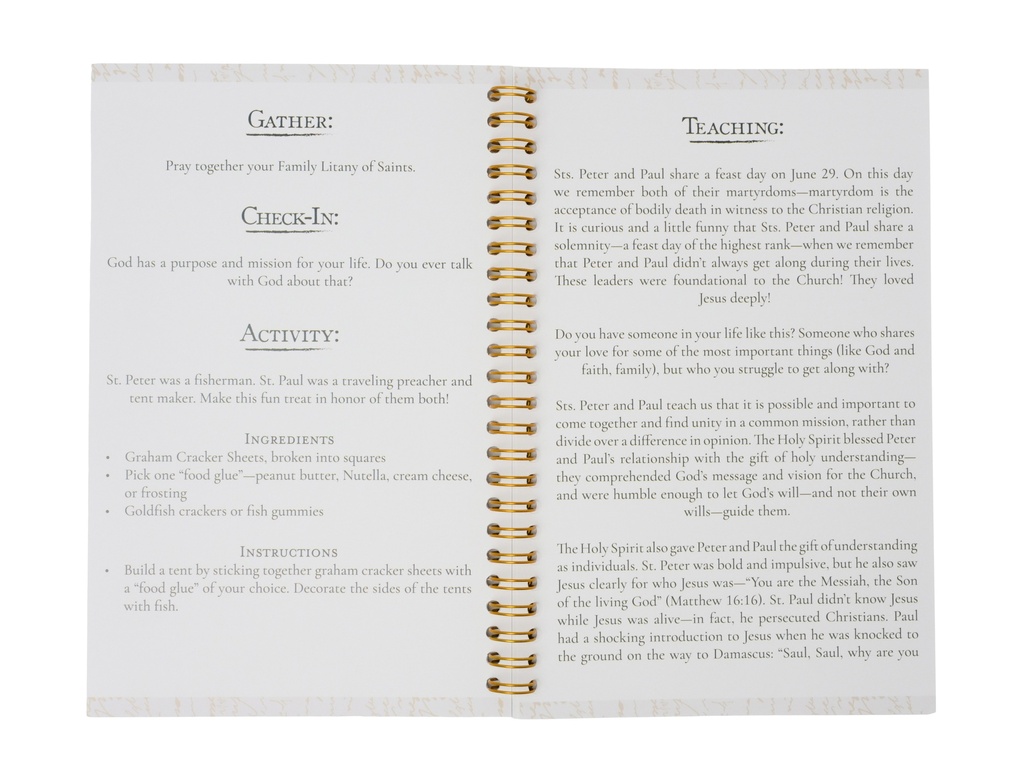 GATHER:
Pray together your Family Litany of Saints.
CHECK-IN:
God has a purpose and mission for your life. Do you ever talk
with God about that?
ACTIVITY:
St. Peter was a fisherman. St. Paul was a traveling preacher and
tent maker. Make this fun treat in honor of them both!
INGREDIENTS
• Graham Cracker Sheets, broken into squares
• Pick one “food glue”—peanut butter, Nutella, cream cheese,
or frosting
• Goldfish crackers or fish gummies
INSTRUCTIONS
• Build a tent by sticking together graham cracker sheets with
a “food glue” of your choice. Decorate the sides of the tents
with fish.
TEACHING:
Sts. Peter and Paul share a feast day on June 29. On this day
we remember both of their martyrdoms—martyrdom is the
acceptance of bodily death in witness to the Christian religion.
It is curious and a little funny that Sts. Peter and Paul share a
solemnity—a feast day of the highest rank—when we remember
that Peter and Paul didn’t always get along during their lives.
These leaders were foundational to the Church! They loved
Jesus deeply!
Do you have someone in your life like this? Someone who shares
your love for some of the most important things (like God and
faith, family), but who you struggle to get along with?
Sts. Peter and Paul teach us that it is possible and important to
come together and find unity in a common mission, rather than
divide over a difference in opinion. The Holy Spirit blessed Peter
and Paul’s relationship with the gift of holy understanding—
they comprehended God’s message and vision for the Church,
and were humble enough to let God’s will—and not their own
wills—guide them.
The Holy Spirit also gave Peter and Paul the gift of understanding
as individuals. St. Peter was bold and impulsive, but he also saw
Jesus clearly for who Jesus was—“You are the Messiah, the Son
of the living God” (Matthew 16:16). St. Paul didn’t know Jesus
while Jesus was alive—in fact, he persecuted Christians. Paul
had a shocking introduction to Jesus when he was knocked to
the ground on the way to Damascus: “Saul, Saul, why are you